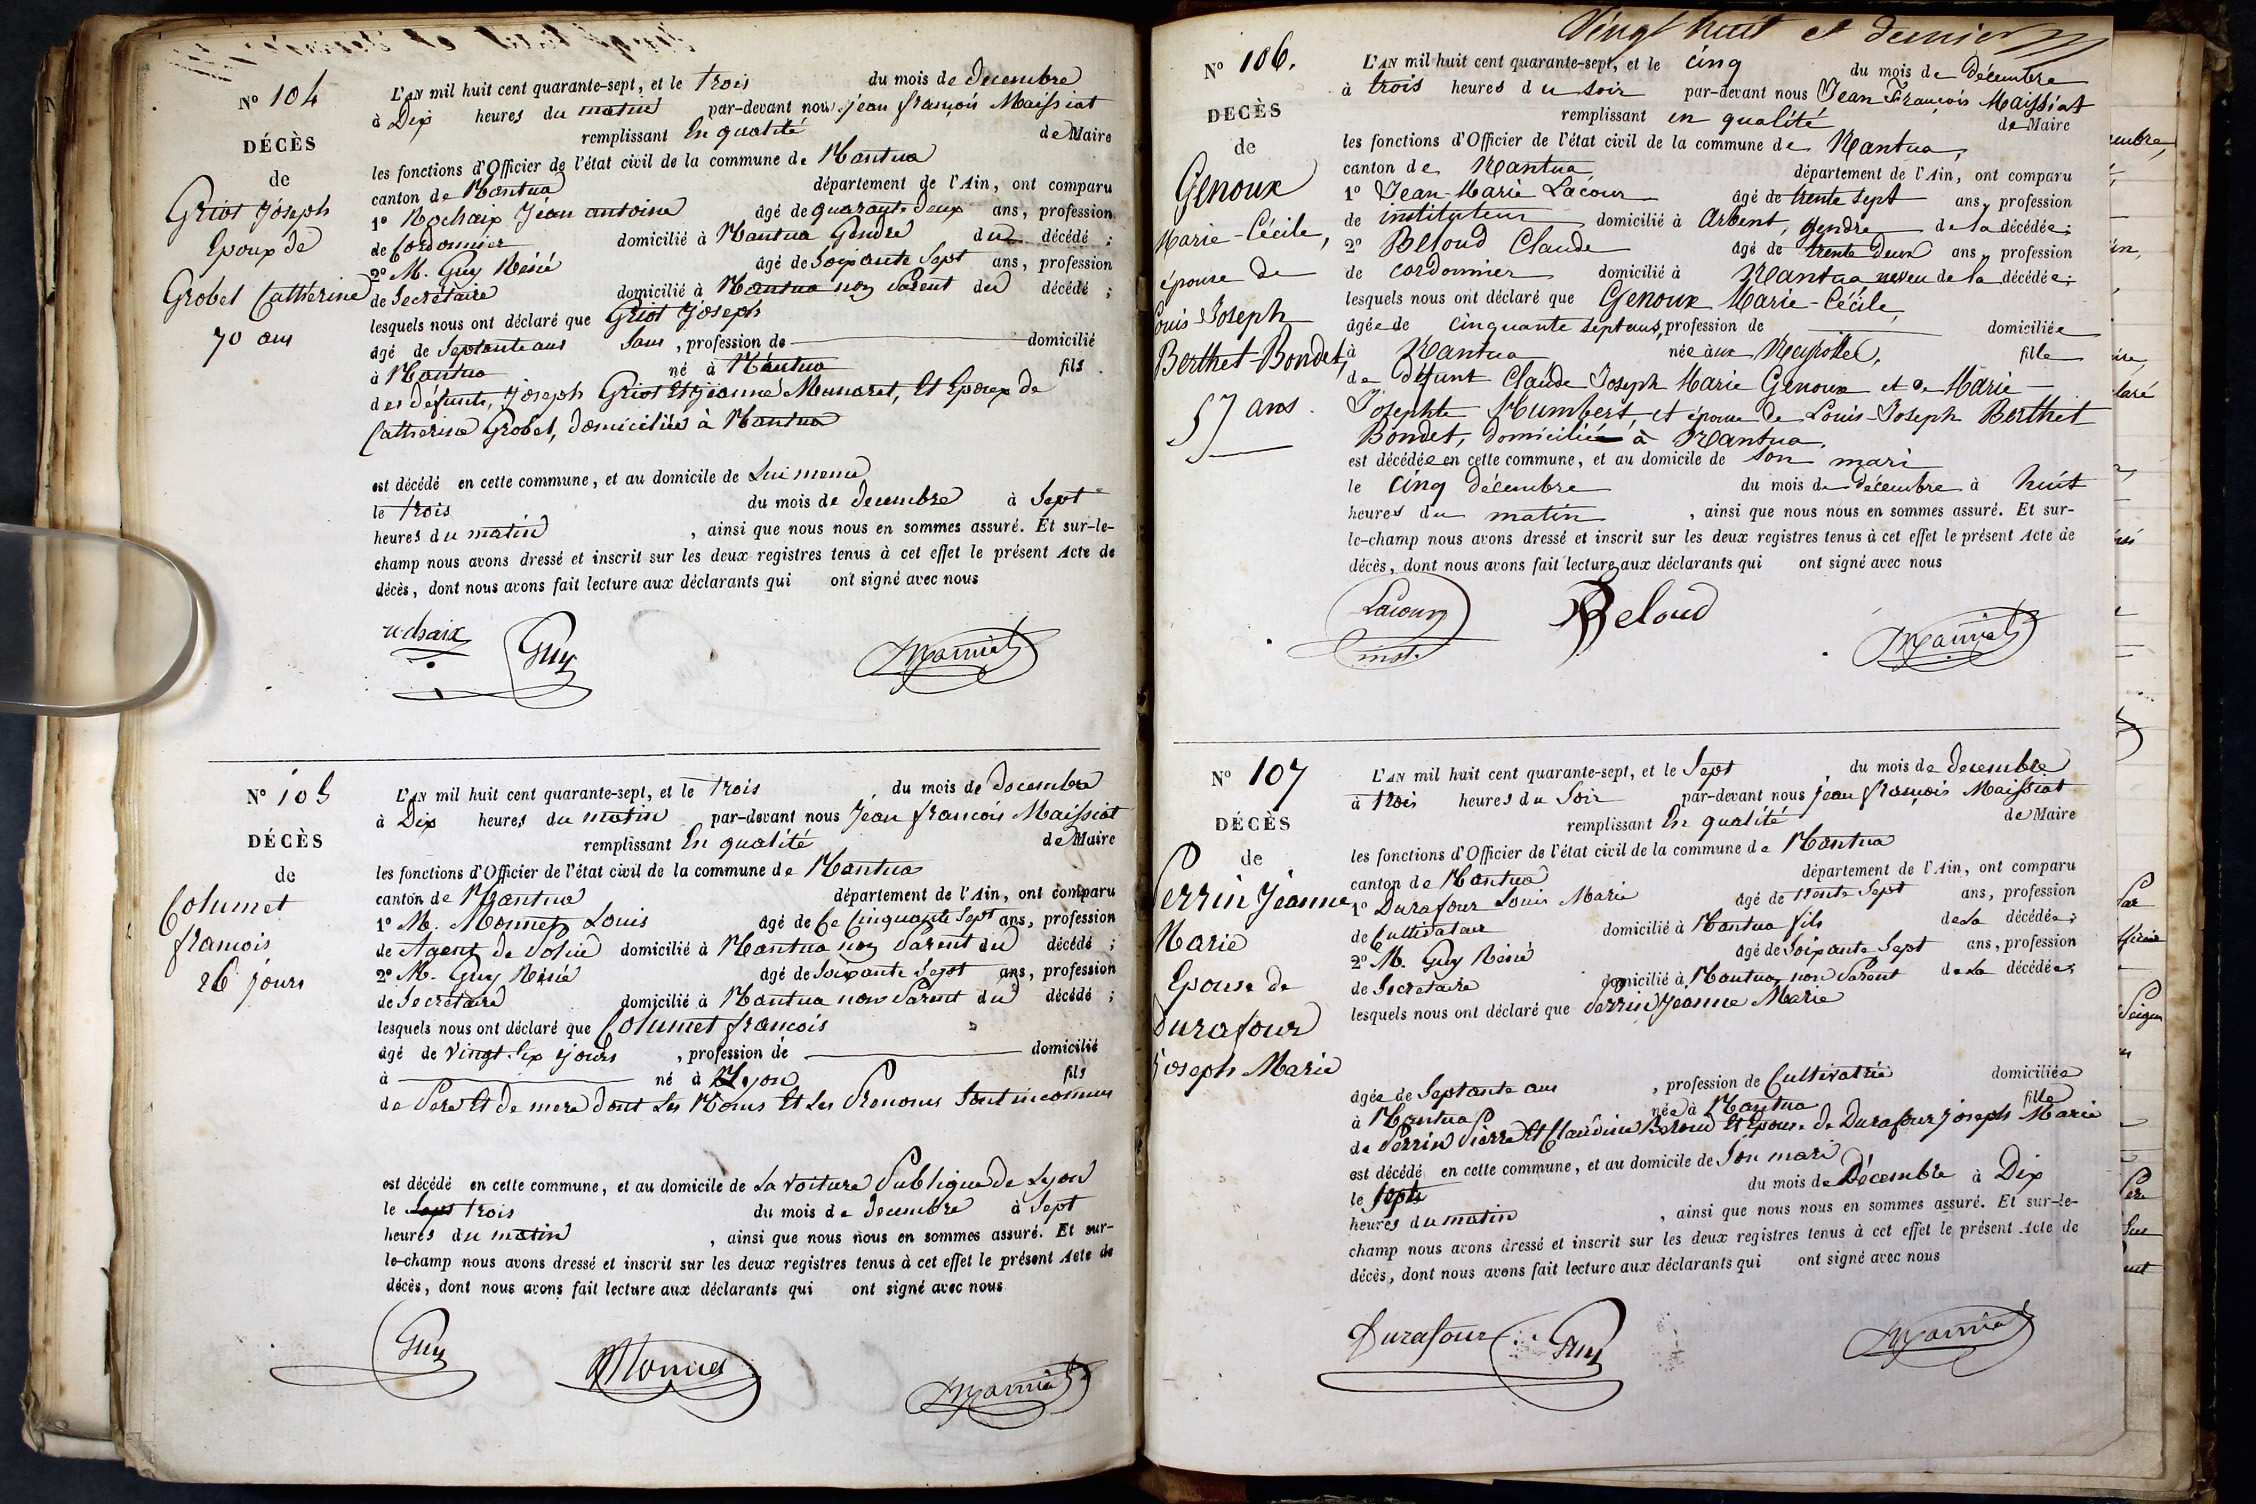 Nº 104
DÉCÈS
de
Griot Joseph
Epoux de
Grobet Catherine
70 ans
L'AN mil huit cent quarante-sept, et le trois du mois de decembre
à Dix heures du matin par-devant nous jean françois Maissiat
remplissant En qualité de Maire
les fonctions d'Officier de l'état civil de la commune de Nantua
canton de Nantua département de l'Ain, ont comparu
1º Rochaix Jean antoine âgé de quarante deux ans, profession
de Cordonnier domicilié à Nantua Gendre du décédé ;
2º M. Guy Réné âgé de Soixante Sept ans, profession
de Secretaire domicilié à Nantua non Parent du décédé ;
lesquels nous ont déclaré que Griot Joseph
âgé de Septante ans Sans , profession de domicilié
à Nantua né à Nantua fils
des défunts, Joseph Griot Et Jeanne Munaret, Et Epoux de
Catherine Grobet, domiciliés à Nantua
est décédé en cette commune, et au domicile de Lui meme
le trois du mois de decembre à Sept
heures du matin , ainsi que nous nous en sommes assuré. Et sur-le-
champ nous avons dressé et inscrit sur les deux registres tenus à cet effet le présent Acte de
décès, dont nous avons fait lecture aux déclarants qui ont signé avec nous
Guy
Nº 105
DÉCÈS
de
Columet
francois
26 jours
L'AN mil huit cent quarante-sept, et le trois du mois de decembre
à Dix heures du matin par-devant nous Jean francois Maissiat
remplissant En qualité de Maire
les fonctions d'Officier de l'état civil de la commune de Nantua
canton de Nantua département de l'Ain, ont comparu
1º M. Monnet Louis âgé de Cinquante Sept ans, profession
de Agent de Police domicilié à Nantua non Parent du décédé ;
2º M. Guy Réné âgé de Soixante Sept ans, profession
de Secretaire domicilié à Nantua non Parent du décédé ;
lesquels nous ont déclaré que Columet francois
âgé de Vingt Six jours , profession de domicilié
à né à Lyon fils
de Pere Et de mere dont Les Noms Et Les Prenoms Sont inconnus
est décédé en cette commune, et au domicile de La voiture Publique de Lyon
le trois du mois de decembre à Sept
heures du matin , ainsi que nous nous en sommes assuré. Et sur-
le-champ nous avons dressé et inscrit sur les deux registres tenus à cet effet le présent Acte de
décès, dont nous avons fait lecture aux déclarants qui ont signé avec nous
Guy Monnet
Vingt huit et dernier
Nº 106.
DÉCÈS
de
Genoux
Marie-Cécile,
épouse de
Louis Joseph
Berthet-Bondet,
57 ans.
L'AN mil huit cent quarante-sept, et le cinq du mois de Décembre
à trois heures du soir par-devant nous Jean François Maissiat
remplissant en qualité de Maire
les fonctions d'Officier de l'état civil de la commune de Nantua,
canton de Nantua, département de l'Ain, ont comparu
1º Jean-Marie Lacour âgé de trente sept ans, profession
de instituteur domicilié à Arbent, gendre de la décédée;
2º Beloud Claude âgé de trente deux ans, profession
de cordonnier domicilié à Nantua neveu de la décédée;
lesquels nous ont déclaré que Genoux Marie-Cécile,
âgée de cinquante sept ans, profession de domiciliée
à Nantua née aux Neyrolles, fille
de défunt Claude Joseph Marie Genoux et de Marie
Josephte Humbert, et épouse de Louis-Joseph Berthet
Bondet, domiciliée à Nantua,
est décédée en cette commune, et au domicile de son mari
le cinq décembre du mois de décembre à huit
heures du matin , ainsi que nous nous en sommes assuré. Et sur-
le-champ nous avons dressé et inscrit sur les deux registres tenus à cet effet le présent Acte de
décès, dont nous avons fait lecture aux déclarants qui ont signé avec nous
Lacour Beloud
inst.
Nº 107
DÉCÈS
de
Perrin Jeanne
Marie
Epouse de
Durafour
Joseph Marie
L'AN mil huit cent quarante-sept, et le Sept du mois de decembre
à trois heures du Soir par-devant nous jean françois Maissiat
remplissant En qualité de Maire
les fonctions d'Officier de l'état civil de la commune de Nantua
canton de Nantua département de l'Ain, ont comparu
1º Durafour Louis Marie âgé de trente Sept ans, profession
de Cultivateur domicilié à Nantua fils de La décédée;
2º M. Guy Réné âgé de Soixante Sept ans, profession
de Secretaire domicilié à Nantua, non Parent de La décédée;
lesquels nous ont déclaré que Perrin Jeanne Marie
âgée de Septante ans , profession de Cultivatrice domiciliée
à Nantua née à Nantua fille
de Perrin Pierre Et Claudine Et Epouse de Durafour Joseph Marie
est décédé en cette commune, et au domicile de Son mari
le Sept du mois de Décembre à Dix
heures du matin , ainsi que nous nous en sommes assuré. Et sur-le-
champ nous avons dressé et inscrit sur les deux registres tenus à cet effet le présent Acte de
décès, dont nous avons fait lecture aux déclarants qui ont signé avec nous
Durafour Guy